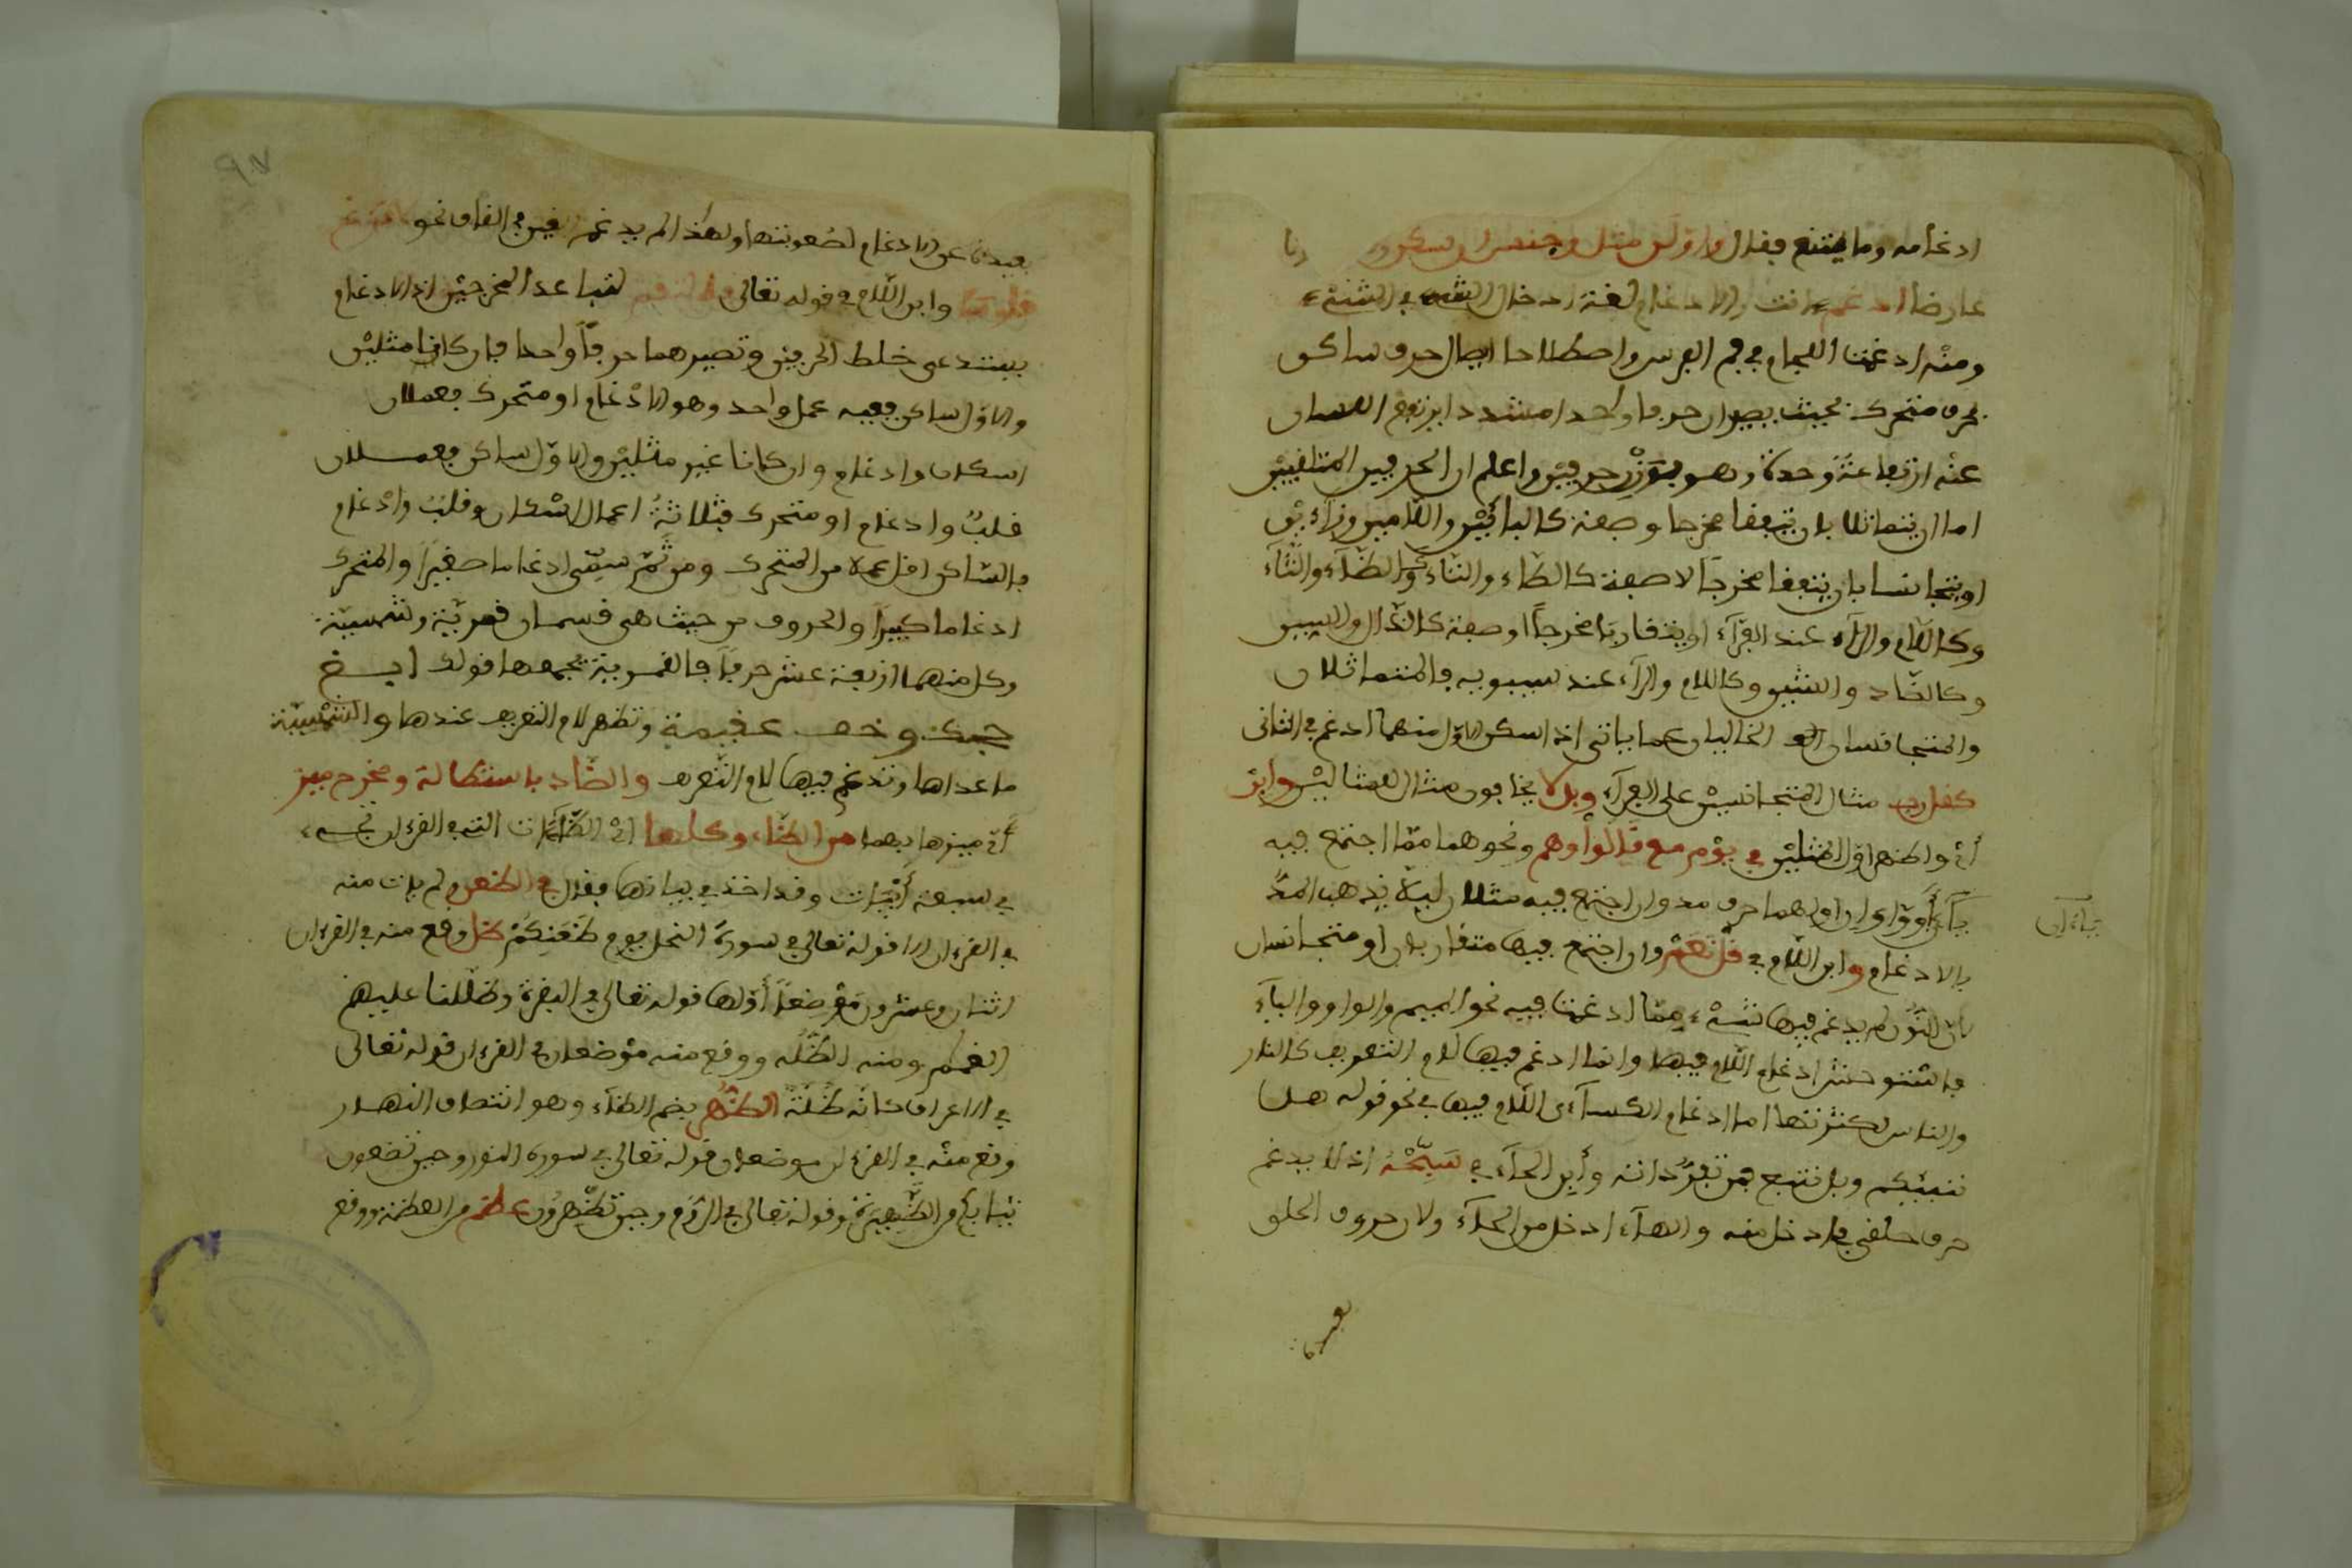 ادغامه وما يمتنع فقال واولى مثل وجنس ان سكن
عارضا ادغم والادغام لغة ادخال الشيء في الشيء
ومنه ادغمت اللجام في فم الفرس واصطلاحا ايصال حرف ساكن
بحرف متحرك بحيث يصيران حرفا واحدا مشددا يرتفع اللسان
عنه ارتفاعة وحدة وهو بوزن حرفين واعلم ان الحرفين المتلفيين
اما ان يتماثلا بان يتفقا مخرجا وصفة كالباءين واللامين
او يتجانسا بان يتفقا مخرجا لا صفة كالطاء والتاء وكالظاء والثاء
وكاللام والراء عند الفراء او يتقاربا مخرجا او صفة كالدال والسين
وكالضاد والشين وكاللام والراء عند سيبويه فالمتماثلان
والمتجانسان الخاليان عما ياتي اذا سكن الاول منهما ادغم في الثاني
كقل رب مثال المتجانسين على الفراء وبل لا يخافون مثال للمثالين وابن
اي واظهر اول المثلين في يوم مع قالوا وهم ونحوهما مما اجتمع فيه
ياءان او واوان اولهما حرف مد وان اجتمع فيه مثلان ليلا يذهب المد
بالادغام وابن اللام في قل نعم وان اجتمع فيها متقاربان او متجانسان
لان النون لم يدغم فيها شيء مما ادغمت فيه نحو الميم والواو والياء
فاستوحش ادغام اللام فيها وانما ادغم فيها لام التعريف كالنار
والناس لكثرتها اما ادغام الكساءي اللام فيها في نحو قوله هل
ننبئكم وبل نتبع فمن تفرداته وابن الحاء في سبحه اذ لا يدغم
حرف حلقي في ادخل منه والهاء ادخل من الحاء ولان حروف الحلق
بعيدة
ياءان
بعيدة عن الادغام لصعوبتها ولهذا لم يدغم الغين في القاف نحو لا تزغ
قلوبنا وابن اللام في قوله تعالى فالتقم لتباعد المخرجين اذ الادغام
يستدعي خلط الحرفين وتصيرهما حرفا واحدا فان كانا مثلين
والاول ساكن ففيه عمل واحد وهو الادغام او متحرك فعملان
اسكان وادغام وان كانا غير مثلين والاول ساكن فعملان
قلب وادغام او متحرك فثلاثة اعمال اسكان وقلب وادغام
فالساكن اقل عملا من المتحرك ومن ثم سمي ادغاما صغيرا والمتحرك
ادغاما كبيرا والحروف من حيث هي قسمان قمرية وشمسية
وكل منهما اربعة عشر حرفا فالقمرية يجمعها قولك ابغ
حجك وخف عقيمه وتظهر لام التعريف عندها والشمسية
ما عداها وتدغم فيها لام التعريف والضاد باستطالة ومخرج ميز
اي ميزها بهما من الظاء وكلها اي الظاءات التي في القرءان تجيء
في سبعة ابيات وقد اخذ في بيانها فقال في الظعن ولم يات منه
في القرءان الا قوله تعالى في سورة النحل يوم ظعنكم ظل وقع منه في القرءان
اثنان وعشرون موضعا اولها قوله تعالى في البقرة وظللنا عليهم
الغمام ومنه الظلة ووقع منه موضعان في القرءان قوله تعالى
في الاعراف كانه ظلة الظهر بضم الظاء وهو انتصاف النهار
وقع منه في القرءان موضعان قوله تعالى في سورة النور وحين تضعون
ثيابكم من الظهيرة وقوله تعالى في الروم وحين تظهرون عظم من العظمة ووقع